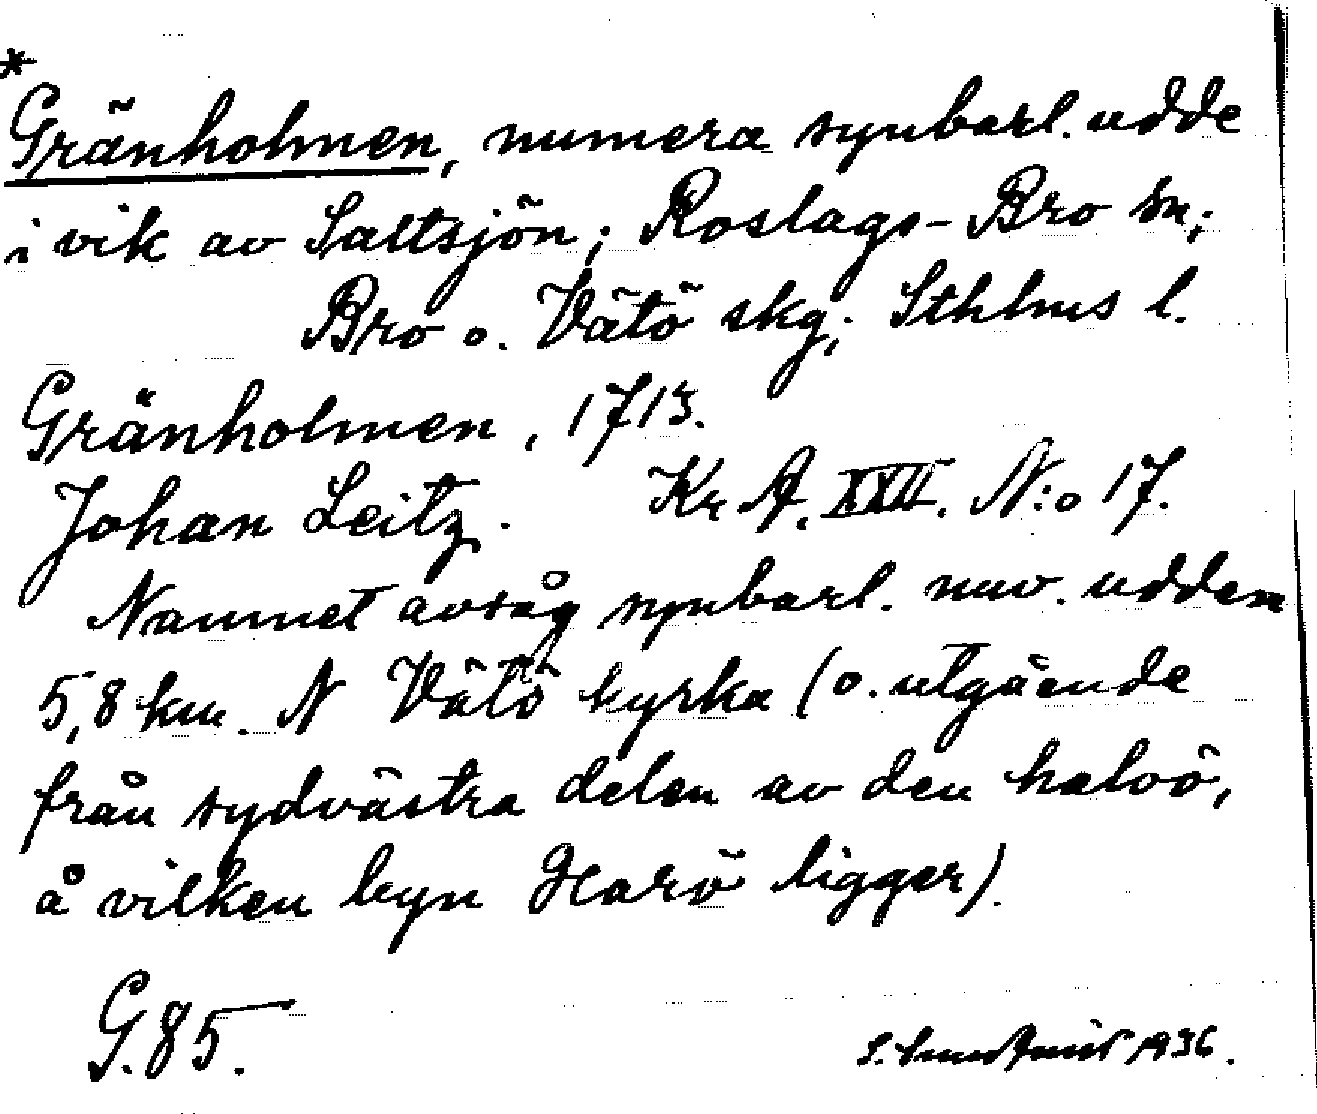 *
Gränholmen, numera synbarl. udde
i vik av Saltsjön; Roslags-Bro sn;
Bro o. Vätö skg; Sthlms l.
Gränholmen, 1713.
Johan Leitz. Kr A. XXII. N:o 17.
Namnet avsåg synbarl. nuv. udden
5,8 km. N Vätö kyrka (o. utgående
från sydvästra delen av den halvö,
å vilken byn Harö ligger).
G.85.
S. 1936.